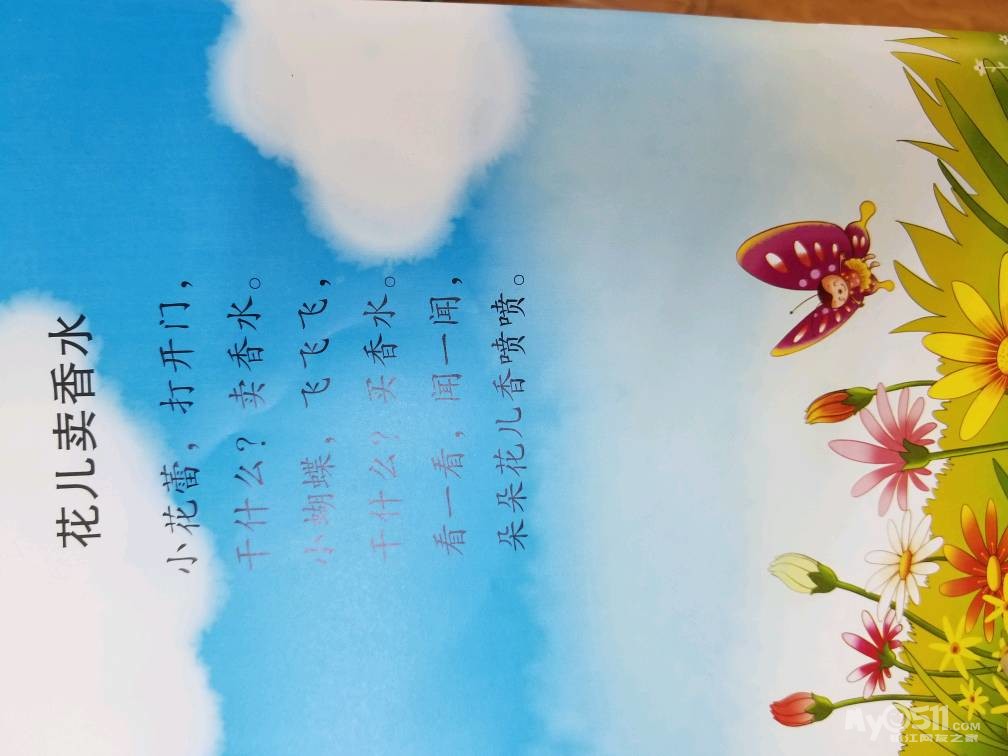 花儿卖香水
小花蕾，打开门，
干什么？卖香水。
小蝴蝶，飞飞飞，
干什么？买香水。
看一看，闻一闻，
朵朵花儿香喷喷。
My0511.COM
镇江网友之家